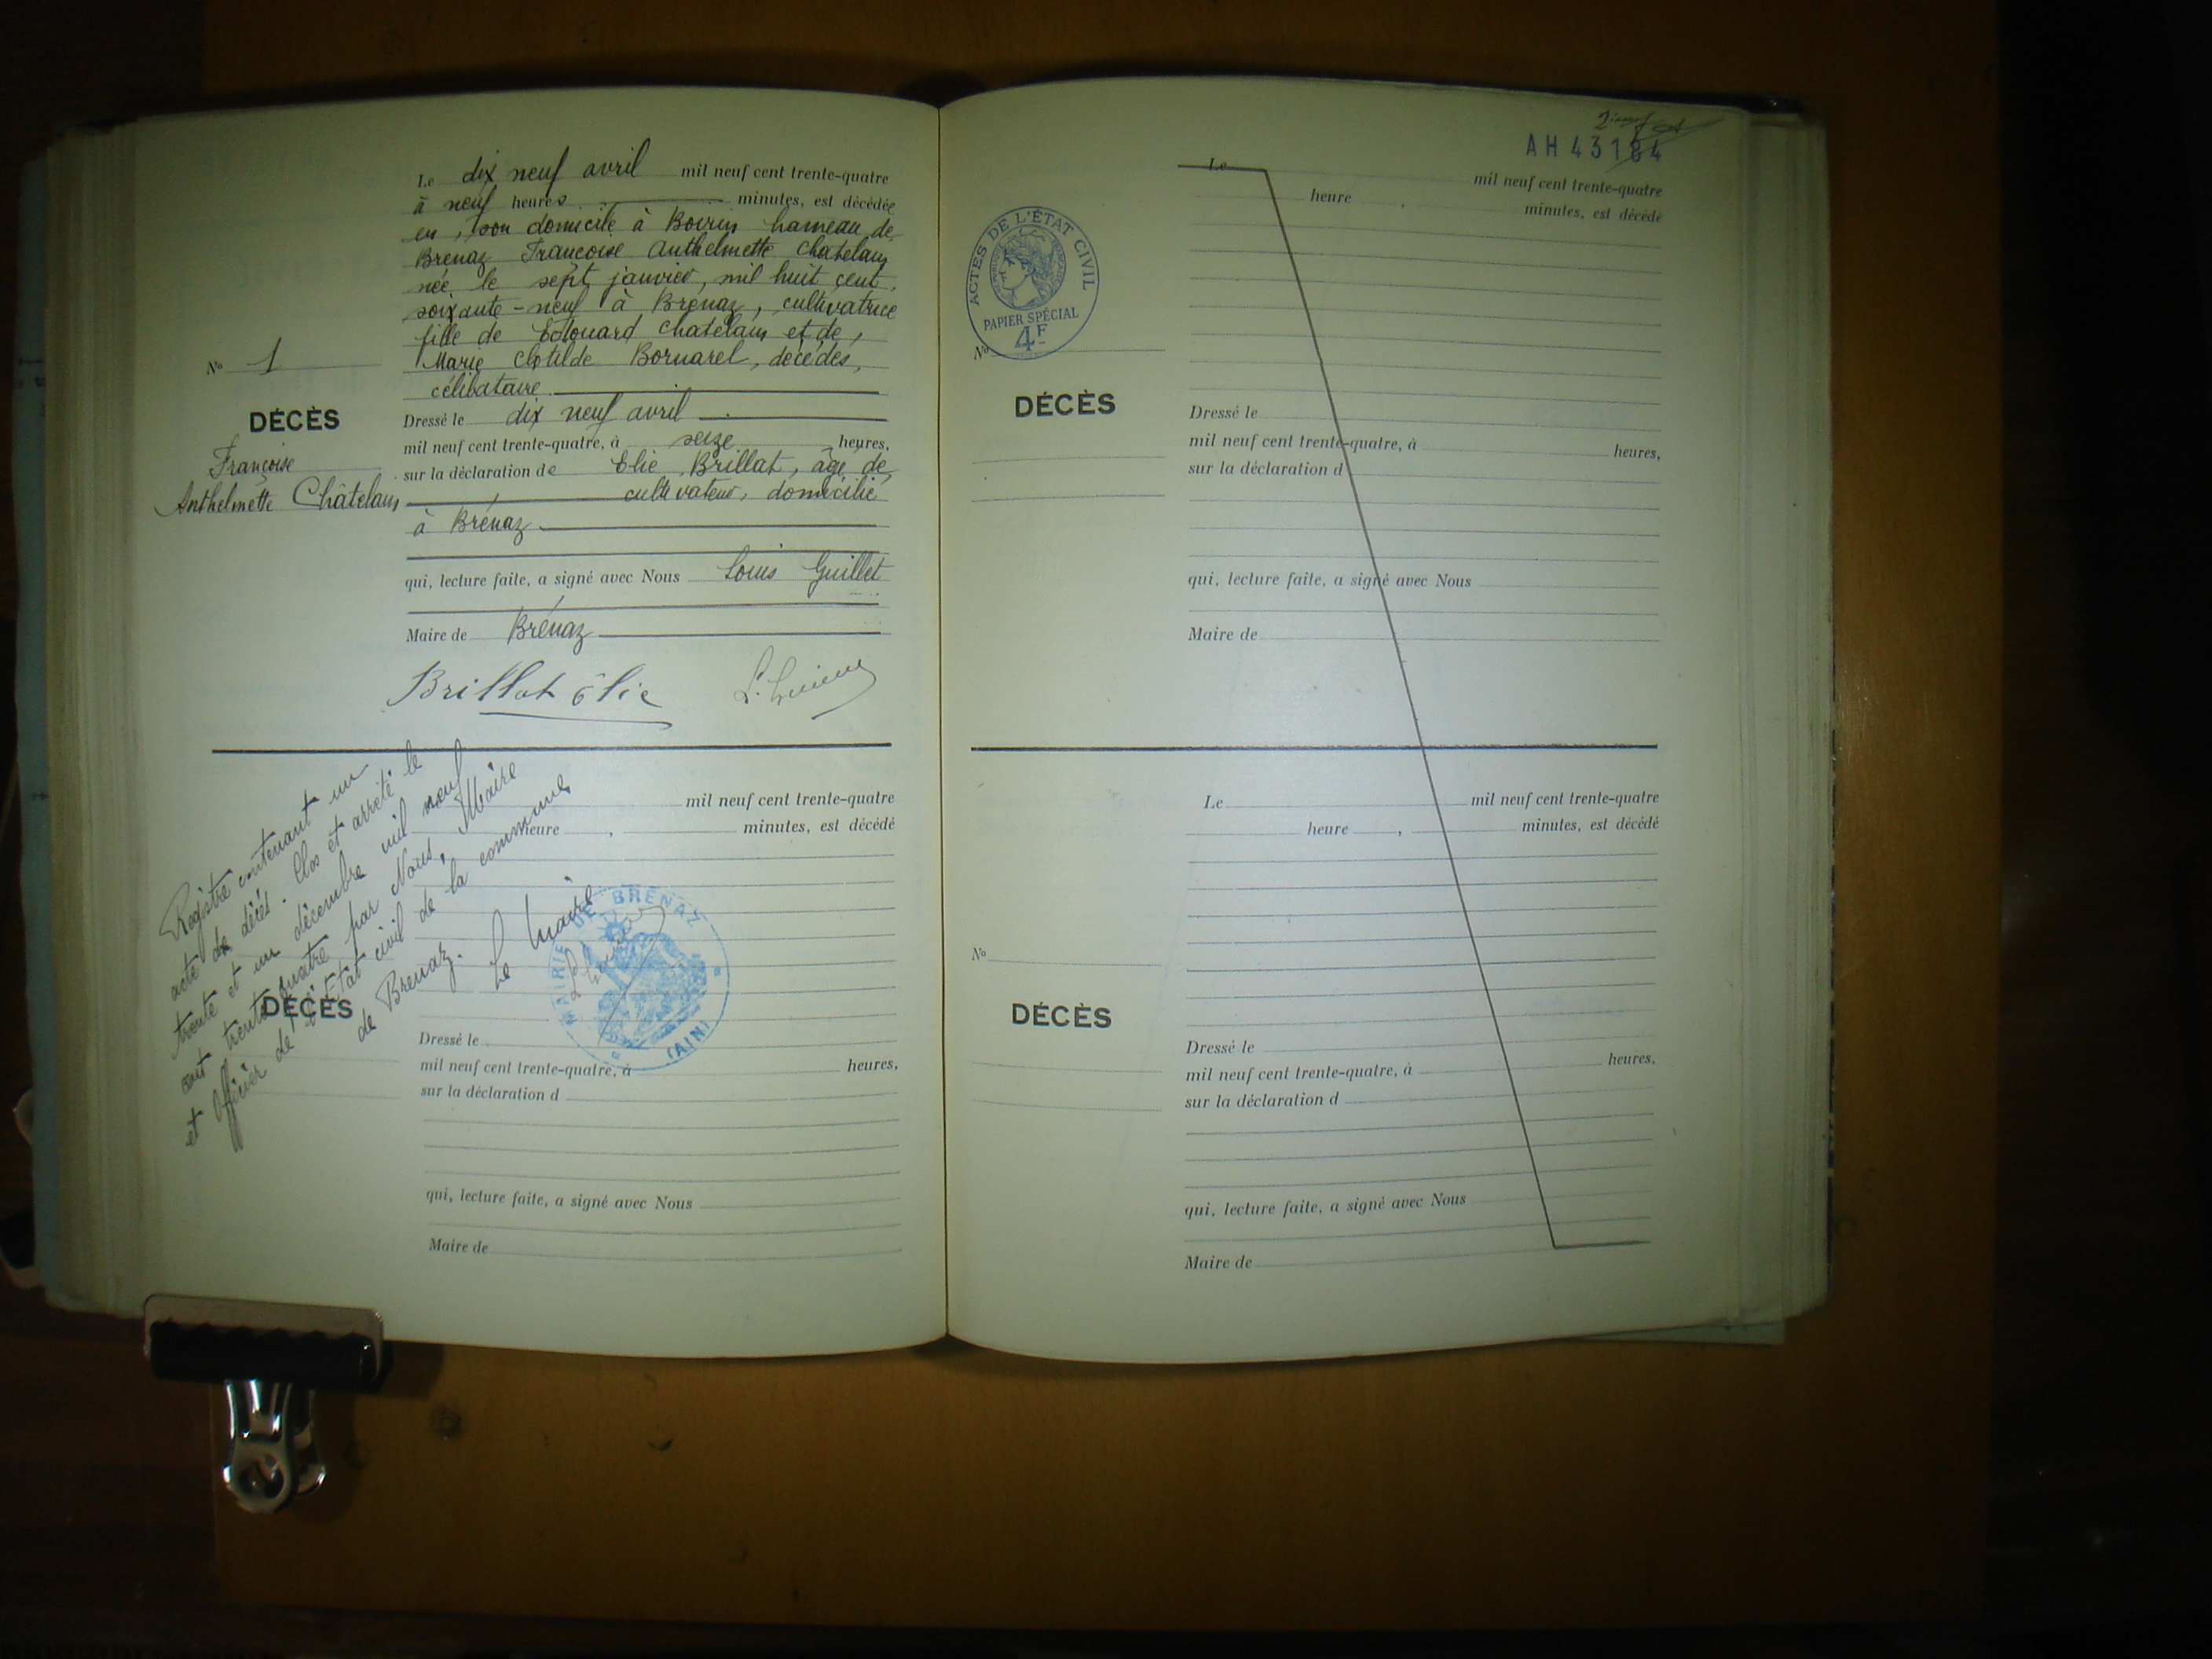 Le dix neuf avril mil neuf cent trente-quatre
à neuf heures minutes, est décédée
en son domicile à hameau de
Brenaz Françoise Anthelmette Chatelain
née le sept janvier, mil huit cent
soixante-neuf à Brenaz, cultivatrice
fille de Edouard Chatelain et de
Marie Clotilde Bornarel, décédés,
célibataire
Nº 1
DÉCÈS
Françoise
Anthelmette Châtelain
Dressé le dix neuf avril
mil neuf cent trente-quatre, à seize heures,
sur la déclaration de Elie Brillat, âgé de
cultivateur, domicilié
à Brénaz
qui, lecture faite, a signé avec Nous Louis Guillet
Maire de Brénaz
Brillat élie
Registre contenant un
acte de décès. Clos et arrêté le
trente et un décembre mil neuf
cent trente quatre par Nous, Maire
et Officier de l'Etat civil de la commune
de Brenaz.
Le Maire
MAIRIE DE BRENAZ
(AIN)
mil neuf cent trente-quatre
heure , minutes, est décédé
DÉCÈS
Dressé le
mil neuf cent trente-quatre, à heures,
sur la déclaration d
qui, lecture faite, a signé avec Nous
Maire de
AH 43184
Le mil neuf cent trente-quatre
heure , minutes, est décédé
ACTES DE L'ÉTAT CIVIL
PAPIER SPÉCIAL
4F
Nº
DÉCÈS
Dressé le
mil neuf cent trente-quatre, à heures,
sur la déclaration d
qui, lecture faite, a signé avec Nous
Maire de
Le mil neuf cent trente-quatre
heure , minutes, est décédé
Nº
DÉCÈS
Dressé le
mil neuf cent trente-quatre, à heures,
sur la déclaration d
qui, lecture faite, a signé avec Nous
Maire de